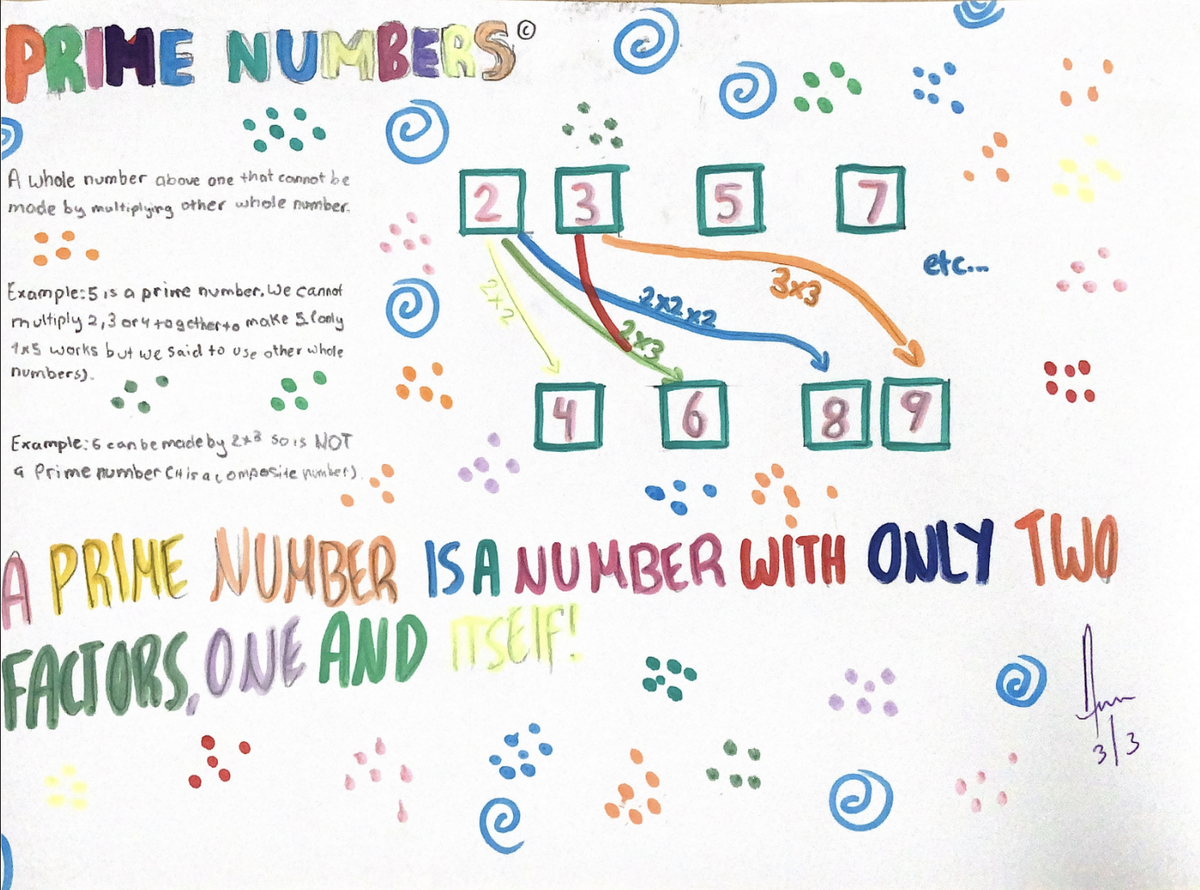 PRIME NUMBERS©
A whole number above one that cannot be
made by multiplying other whole number.
Example: 5 is a prime number. We cannot
multiply 2, 3 or 4 together to make 5 (only
1x5 works but we said to use other whole
numbers).
Example: 6 can be made by 2x3 so is NOT
a Prime number (it is a composite number)
2 3 5 7
etc...
2x2
2x3
2x2x2
3x3
4 6 8 9
A PRIME NUMBER IS A NUMBER WITH ONLY TWO
FACTORS, ONE AND ITSELF!
3/3